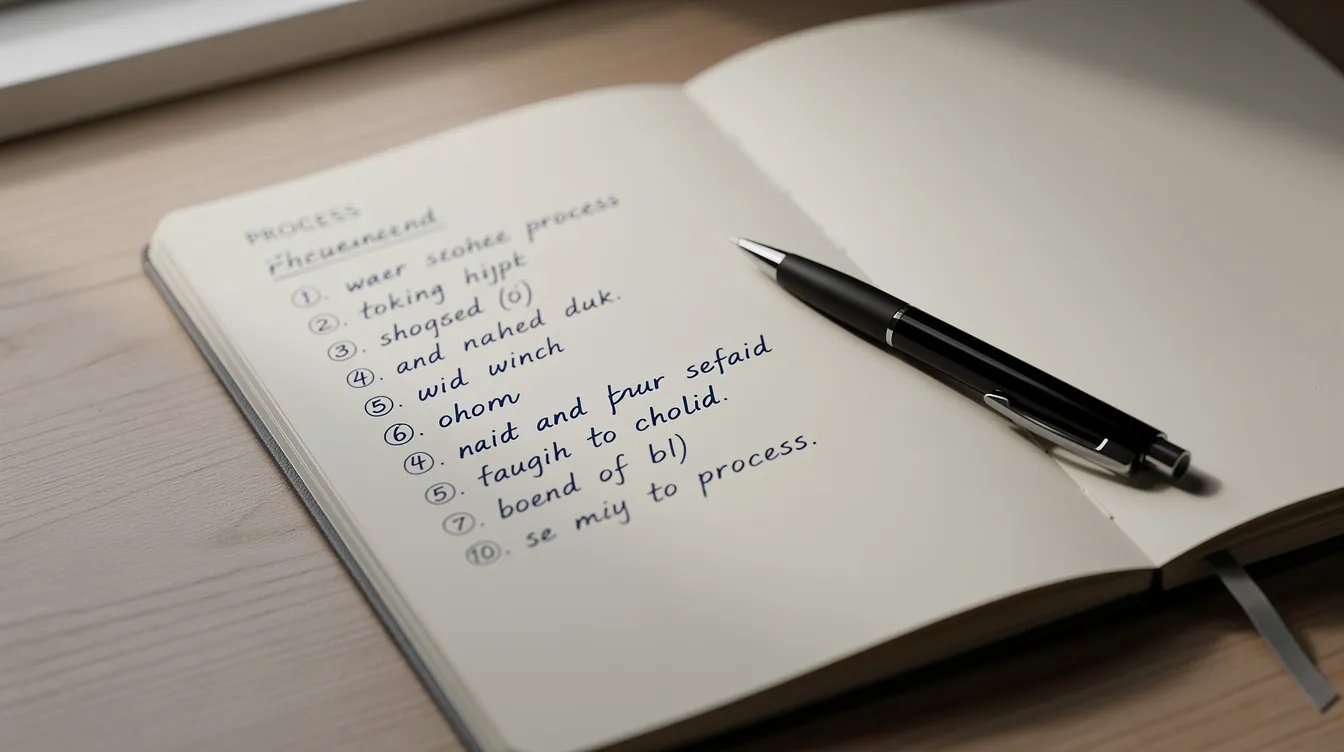 PROCESS
① . waer scohee process
② . toking hijpt
③ . shogsed (o)
④ . and nahed duk.
⑤ . wid winch
⑥ . ohom
④ . naid and prur sefaid
⑤ . faugih to cholid.
⑦ . boend of bl)
⑩ . se miy to process.